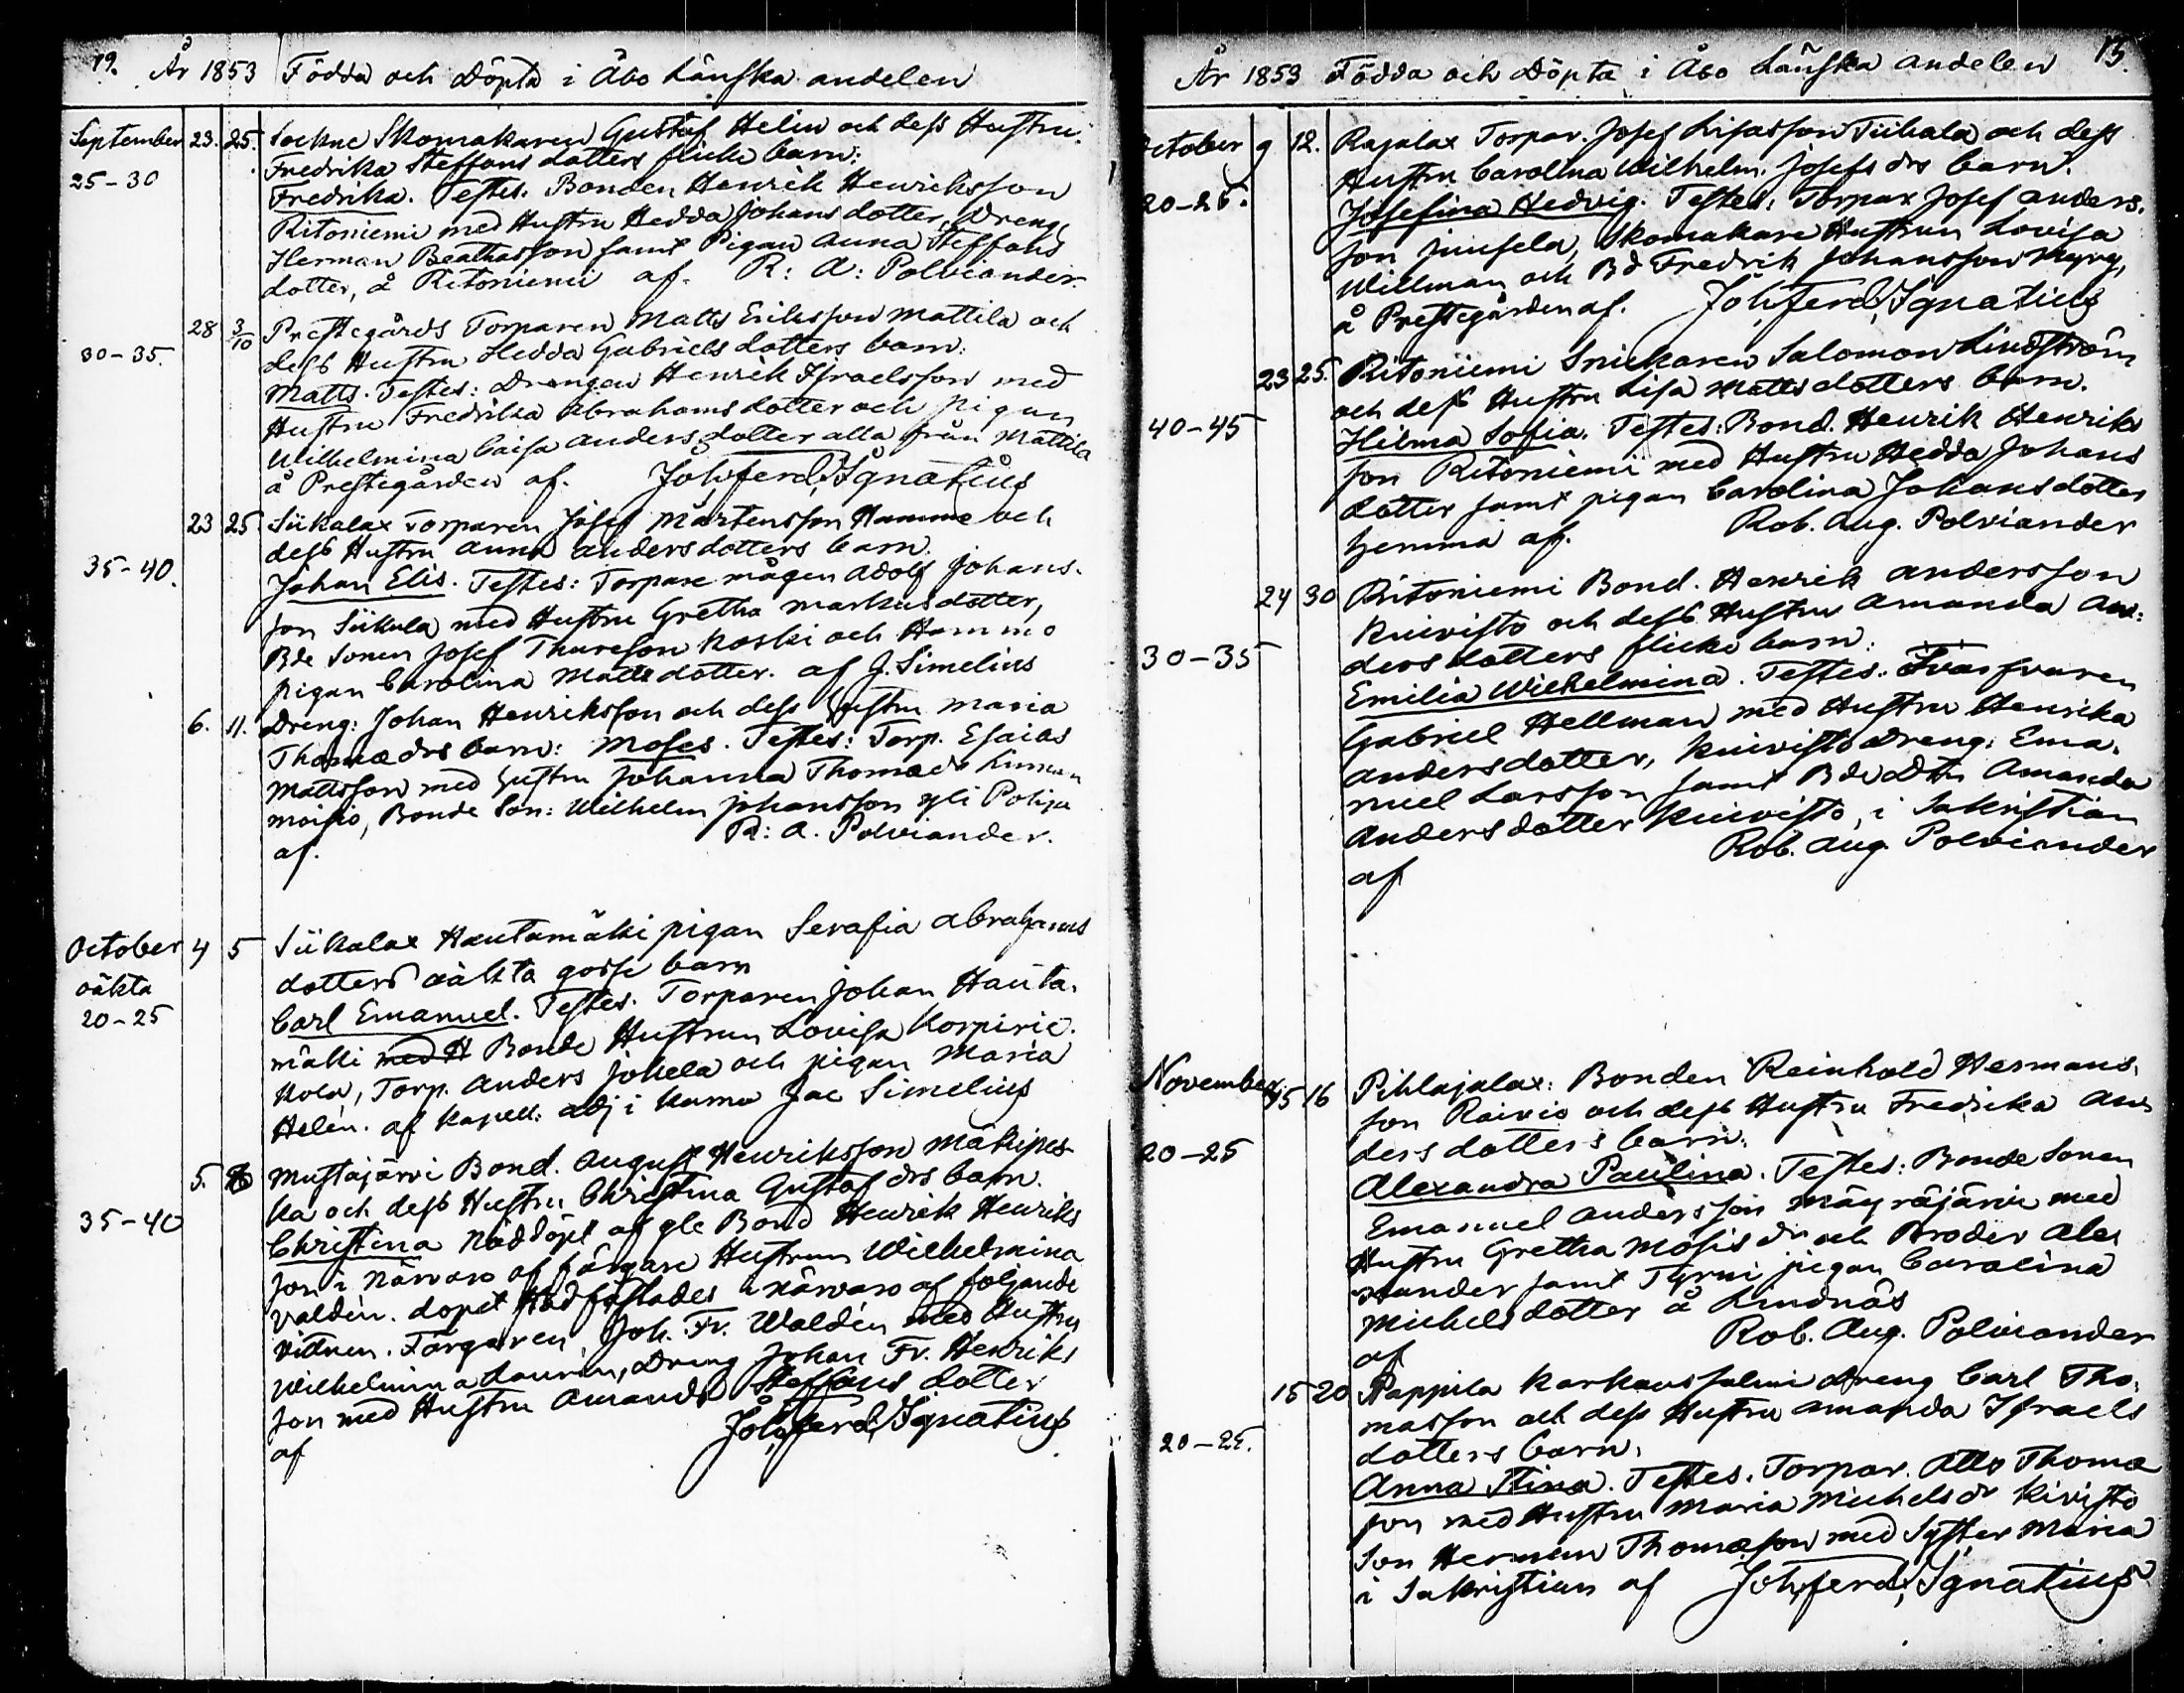 79. År 1853 Födda och Döpta i Åbo Länska andelen
September 23. 25. Sockne Skomakaren Gustaf Helin och dess Hustru
25-30 Fredrika Steffansdotters flicke barn:
Fredrika. Testes. Bonden Henrik Henriksson
Ritoniemi med Hustru Hedda Johansdotter, Dreng
Herman Beathasson samt Pigan Anna Steffans
dotter, å Ritoniemi af. R: A: Polviander.
28 3/10 Prestegårds Torparen Matts Eriksson Mattila och
30-35. dess Hustru Hedda Gabriels dotters barn:
Matts. Testes: Drengen Henrik Israelsson med
Hustru Fredrika Abrahams dotter och pigan
Wilhelmina Caisa Anders dotter alla från Mattila
å Prestegården af. Joh. Ferd. Ignatius
23 25 Siikalax Torparen Josef Mårtensson Hamme och
dess Hustru Anna Andersdotters barn.
35-40. Johan Elis. Testes: Torpare mågen Adolf Johans-
son Siikala med Hustru Gretha Markusdotter,
Bde Sonen Josef Thureson Koski och Hammo
pigan Carolina Mattsdotter. af J. Simelius
6. 11. Dreng: Johan Henriksson och dess Hustru Maria
Thomædrs barn: Moses. Testes: Torp. Esaias
Mattsson med Hustru Johanna Thomædr
moisio, Bonde Son: Wilhelm Johansson yli Pohja
af. R: A. Polviander.
October 4 5 Siikalax Hautamäki pigan Serafia Abrahams
oäkta dotters oäkta gosse barn
20-25 Carl Emanuel. Testes. Torparen Johan Hauta-
mäki med H Bonde Hustrun Lovisa Korpirie-
kola, Torp. Anders Jokela och pigan Maria
Helén. af Kapell. adj i Kumo Jac Simelius
5. 8 Mustajärvi Bond. August Henriksson Mäkipes-
ka och dess Hustru Christina Gustafdrs barn.
35-40 Christina Nöddöpt af gle Bond Henrik Henriks
son i närvaro af färgare Hustrun Wilhelmina
Valdén. dopet stadfästades i närvaro af följande
vittnen. Färgaren, Joh. Fr. Waldén med Hustru
Wilhelmina Laurén, Dreng Johan Fr. Henriks
son med Hustru Amanda Staffans dotter
af Joh. Ferd. Ignatius
År 1853 Födda och Döpta i Åbo Länska andelen 15.
October 9 12. Rajalax Torpar. Josef Lisasson Siikala och dess
Hustru Carolina Wilhelm. Josefs drs barn.
20-25. Josefina Hedvig. Testes: Torpar Josef Anders-
son Junsela, Skomakare Hustrun Lovisa
Willman och Bd Fredrik Johansson Myry,
å Prestegården af. Joh. Ferd. Ignatius
23 25. Ritoniemi Snickaren Salomon Lindström
och dess Hustru Lisa Mattsdotters barn.
40-45 Hilma Sofia. Testes: Bond. Henrik Henriks
son Ritoniemi med Hustru Hedda Johans
dotter samt pigan Carolina Johansdotter
hemma af. Rob. Aug. Polviander
24 30 Ritoniemi Bond. Henrik Andersson
Kuivisto och dess Hustru Amanda An-
30-35 dersdotters flicke barn:
Emilia Wilhelmina. Testes: Svarfvaren
Gabriel Hellman med Hustru Henrika
Andersdotter, Kuivisto Dreng: Ema-
nuel Larsson samt Bde Dtr Amanda
Andersdotter Kuivisto, i Sakristian
af Rob. Aug. Polviander
November 15 16 Pihlajalax: Bonden Reinhold Hermans-
son Raivio och dess Hustru Fredrika An-
20-25 dersdotters barn.
Alexandra Paulina. Testes: Bonde Sonen
Emanuel Andersson Mäyräjärvi med
Hustru Gretha Mosis dr och Broder Alex
xander samt Tyrni pigan Carolina
Michelsdotter å Lindnäs
af Rob. Aug. Polviander
15 20 Pappila Karhunsalmi Dreng Carl Tho-
masson och dess Hustru Amanda Israels
20-25. dotters barn.
Anna Stina. Testes. Torpar. Otto Thomæ
son med Hustru Maria Michelsdr Kivistö
Son Herman Thomæson med Syster Maria
i Sakristian af Joh. Ferd. Ignatius